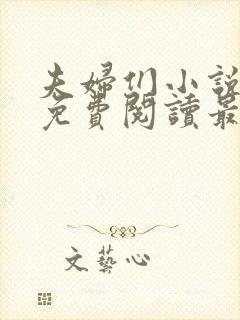 夫婦们小說
免費閱讀最
文藝心